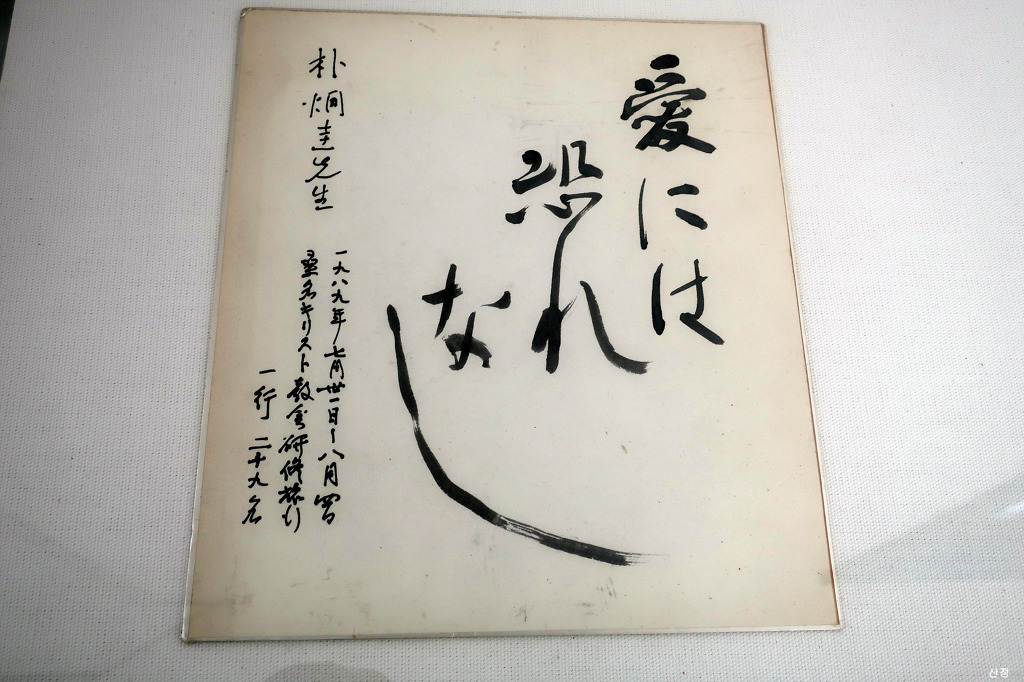 愛には
恐れ
なし
朴炯圭先生
一九八九年七月卅一日〜八月四日
桑名キリスト教会研修旅行
一行二十九名
산정